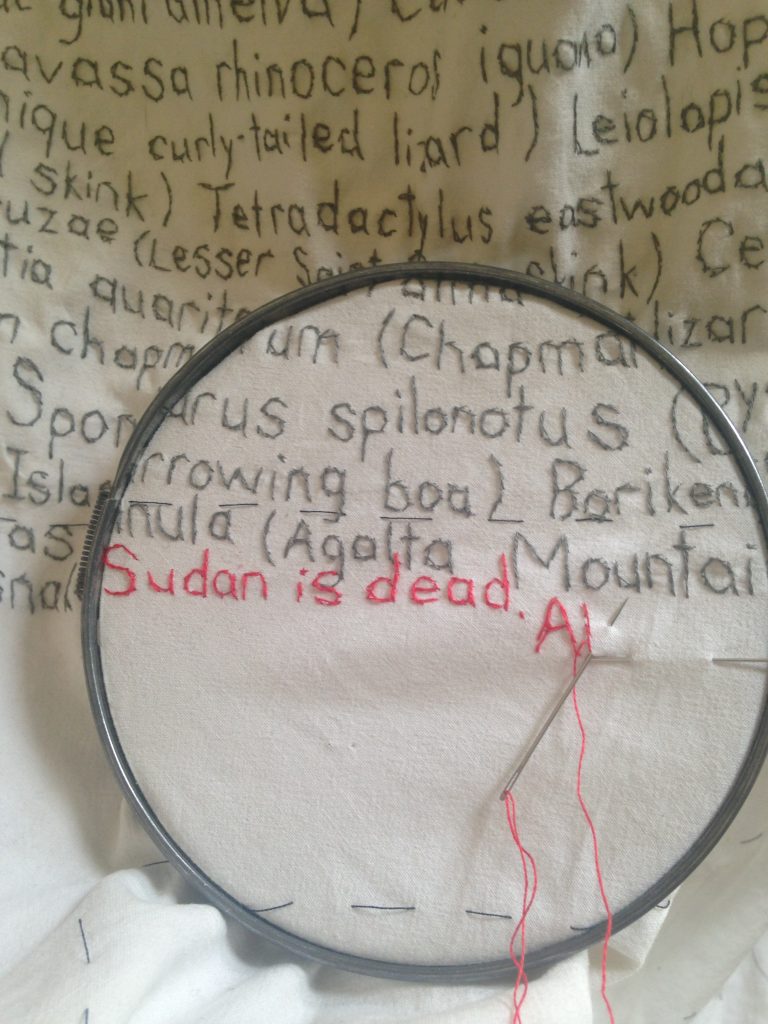 giant ameiva)
avassa rhinoceros iguana) Hop
nique curly-tailed lizard) Leiolopis
skink) Tetradactylus eastwooda
uzae (Lesser Saint skink) Ce
tia quarito
n chapm rum (Chapman lizar
Spon urus spilonotus (By
Isla rrowing boa) Boriken
as nnula (Agalta Mountai
sna
Sudan is dead. Al